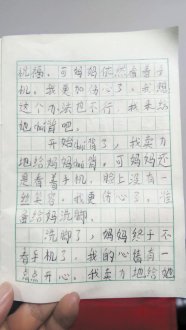 机强。可妈妈依然看着手
机。我更加伤心了，我想
这个办法也不行，我来给
她捶背吧。
开始捶背了，我卖力
地给妈妈捶背。可妈妈还
是看着手机，脸上没有一
丝笑容。我更伤心了，准
备给妈洗脚。
洗脚了，妈妈终于不
看手机了，我的心情有一
点点开心。我卖力地给她